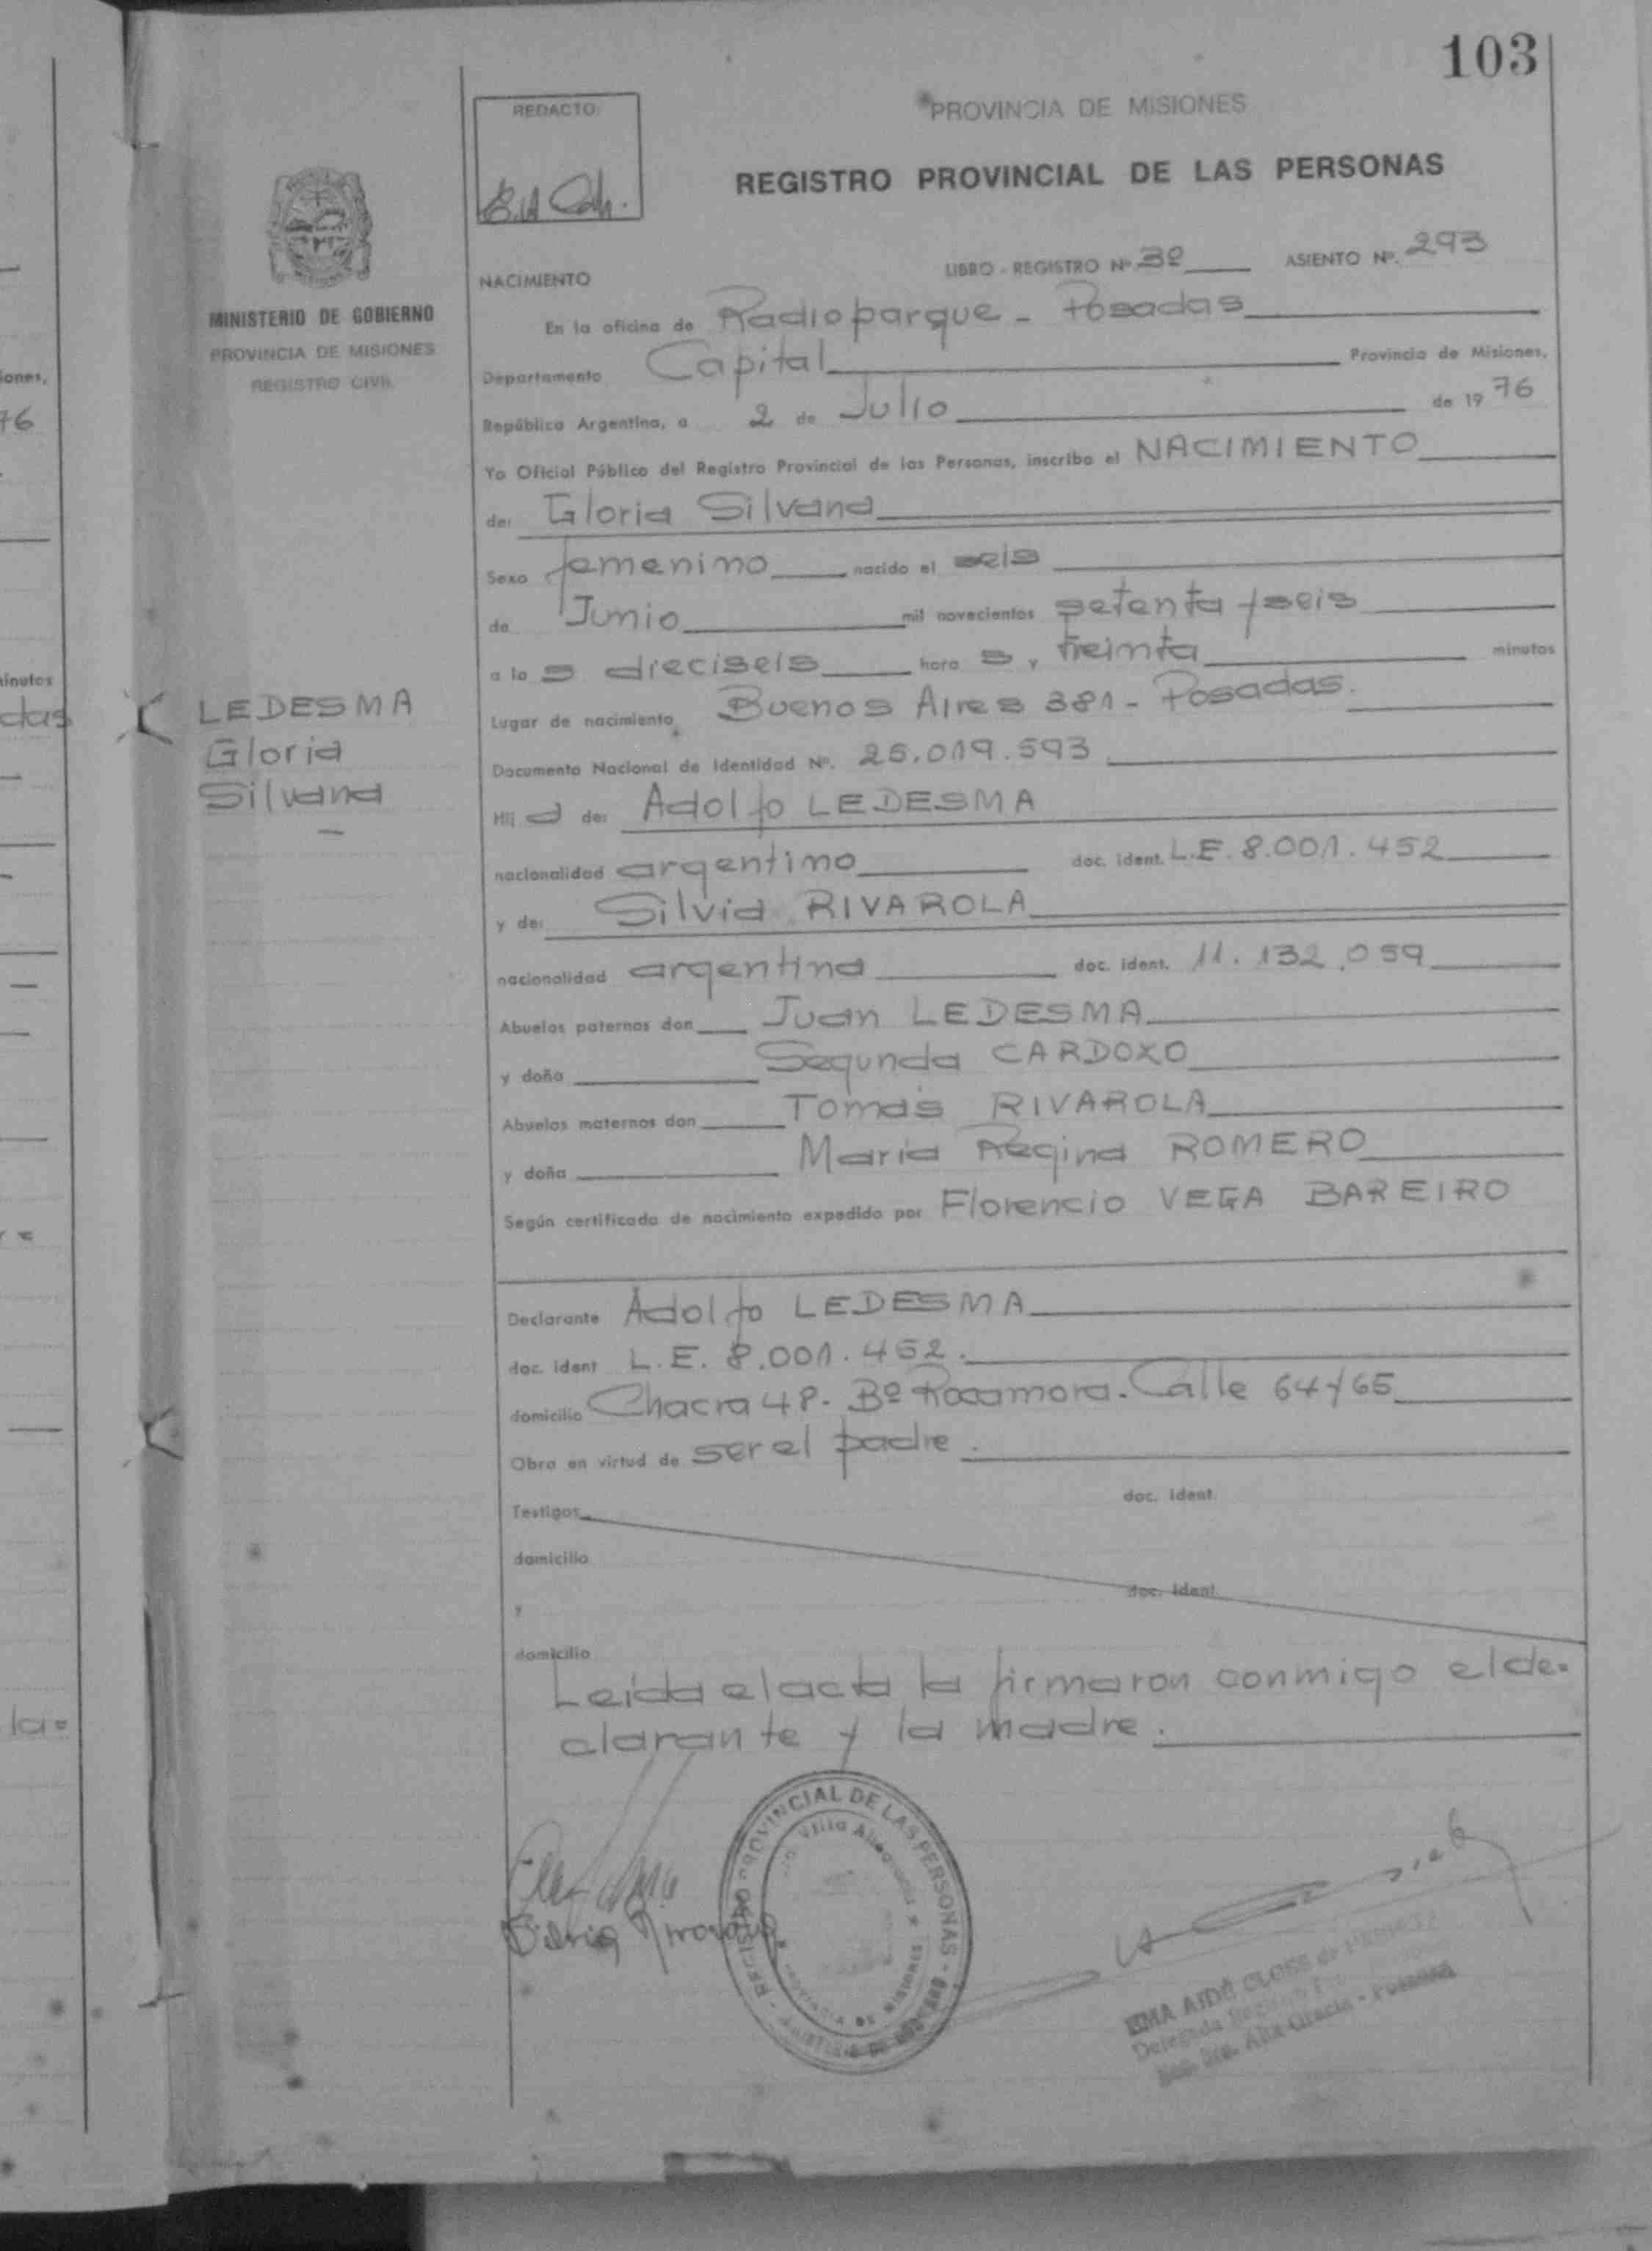 103
REDACTO:
PROVINCIA DE MISIONES
REGISTRO PROVINCIAL DE LAS PERSONAS
MINISTERIO DE GOBIERNO
PROVINCIA DE MISIONES
REGISTRO CIVIL
NACIMIENTO
LIBRO - REGISTRO Nº 3º ASIENTO Nº. 293
En la oficina de Radioparque - Posadas
Departamento Capital Provincia de Misiones,
República Argentina, a 2 de Julio de 19 76
Yo Oficial Público del Registro Provincial de las Personas, inscribo el NACIMIENTO
de: Gloria Silvana
Sexo femenino nacido el seis
de Junio mil novecientos setenta y seis
a la s dieciseis hora s y treinta minutos
Lugar de nacimiento Buenos Aires 381 - Posadas.
Documento Nacional de Identidad Nº. 25.019.593
LEDESMA
Gloria
Silvana
Hij a de: Adolfo LEDESMA
nacionalidad argentino doc. ident. L.E. 8.001.452
y de: Silvia RIVAROLA
nacionalidad argentina doc. ident. 11.132.059
Abuelos paternos don Juan LEDESMA
y doña Segunda CARDOXO
Abuelos maternos don Tomás RIVAROLA
y doña María Regina ROMERO
Según certificado de nacimiento expedido por Florencio VEGA BAREIRO
Declarante Adolfo LEDESMA
doc. ident L.E. 8.001.452.
domicilio Chacra 48. Bº Rocamora. Calle 64 y 65
Obra en virtud de ser el padre.
doc. ident.
Testigos
domicilio
doc. ident.
y
domicilio
Leída el acta la firmaron conmigo el de=
clarante y la madre.
REGISTRO PROVINCIAL DE LAS PERSONAS
PROVINCIA DE MISIONES
AIDÉ CLOSS de
Delegada
Alta Gracia - Posadas
iones,
76
minutos
das
la=